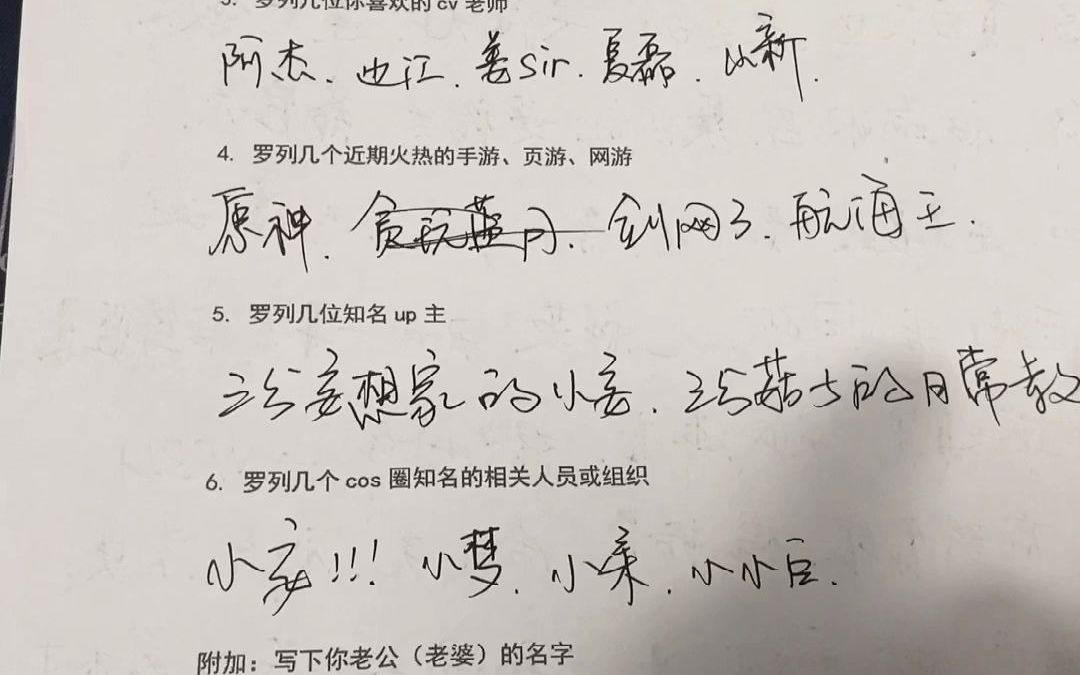 3. 罗列几位你喜欢的 cv 老师
阿杰、也江、姜Sir、夏磊、以新、
4. 罗列几个近期火热的手游、页游、网游
原神、贪玩蓝月、剑网3、航海王、
5. 罗列几位知名 up 主
妄想家的小妄、菇士的日常教
6. 罗列几个 cos 圈知名的相关人员或组织
小妄!!! 小梦、小柔、小小白、
附加：写下你老公（老婆）的名字